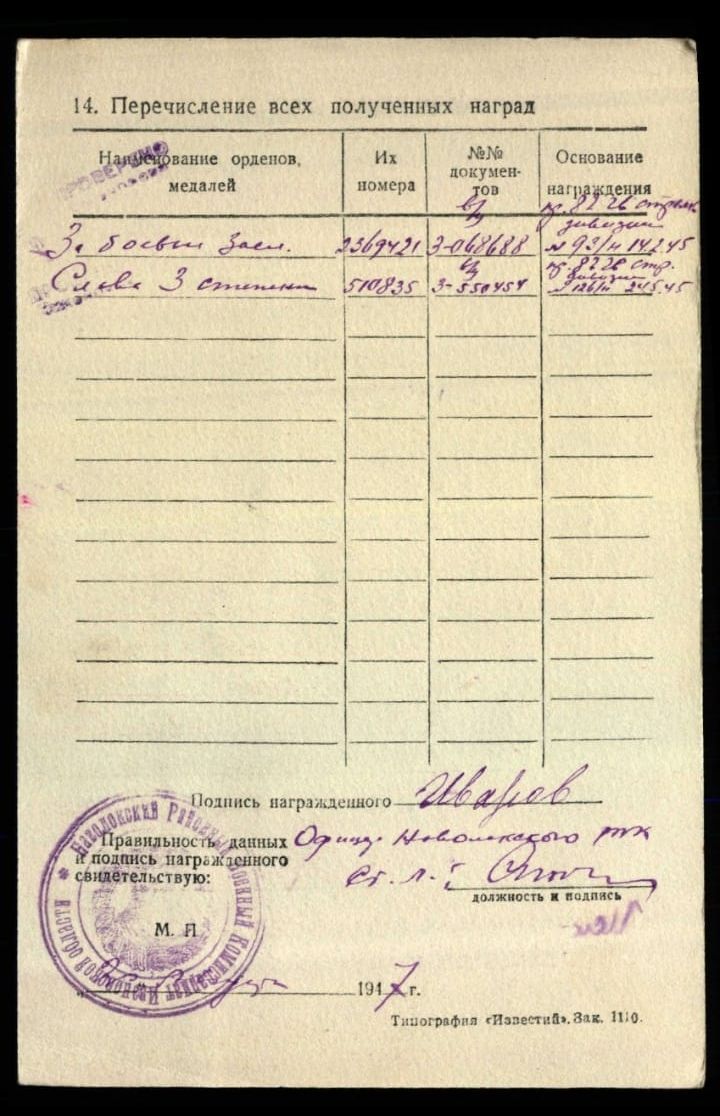 14. Перечисление всех полученных наград
Наименование орденов, медалей
Их номера
№№ документов
Основание награждения
ПРОВЕРЕНО
За боевые Засл. 2369421 в/у З-068688 пр. 82 гв стрелк дивизии № 93/н 14.2.45
Слава 3 степени 510835 в/у З-550454 пр. 82 гв стр. дивизии № 126/н 2.4.5.45
Подпись награжденного
Правильность данных
и подпись награжденного
свидетельствую:
Офицер
ст. л-т
должность и подпись
Районный Военный Комиссариат области
М. П
1947 г.
Типография «Известий». Зак. 1110.